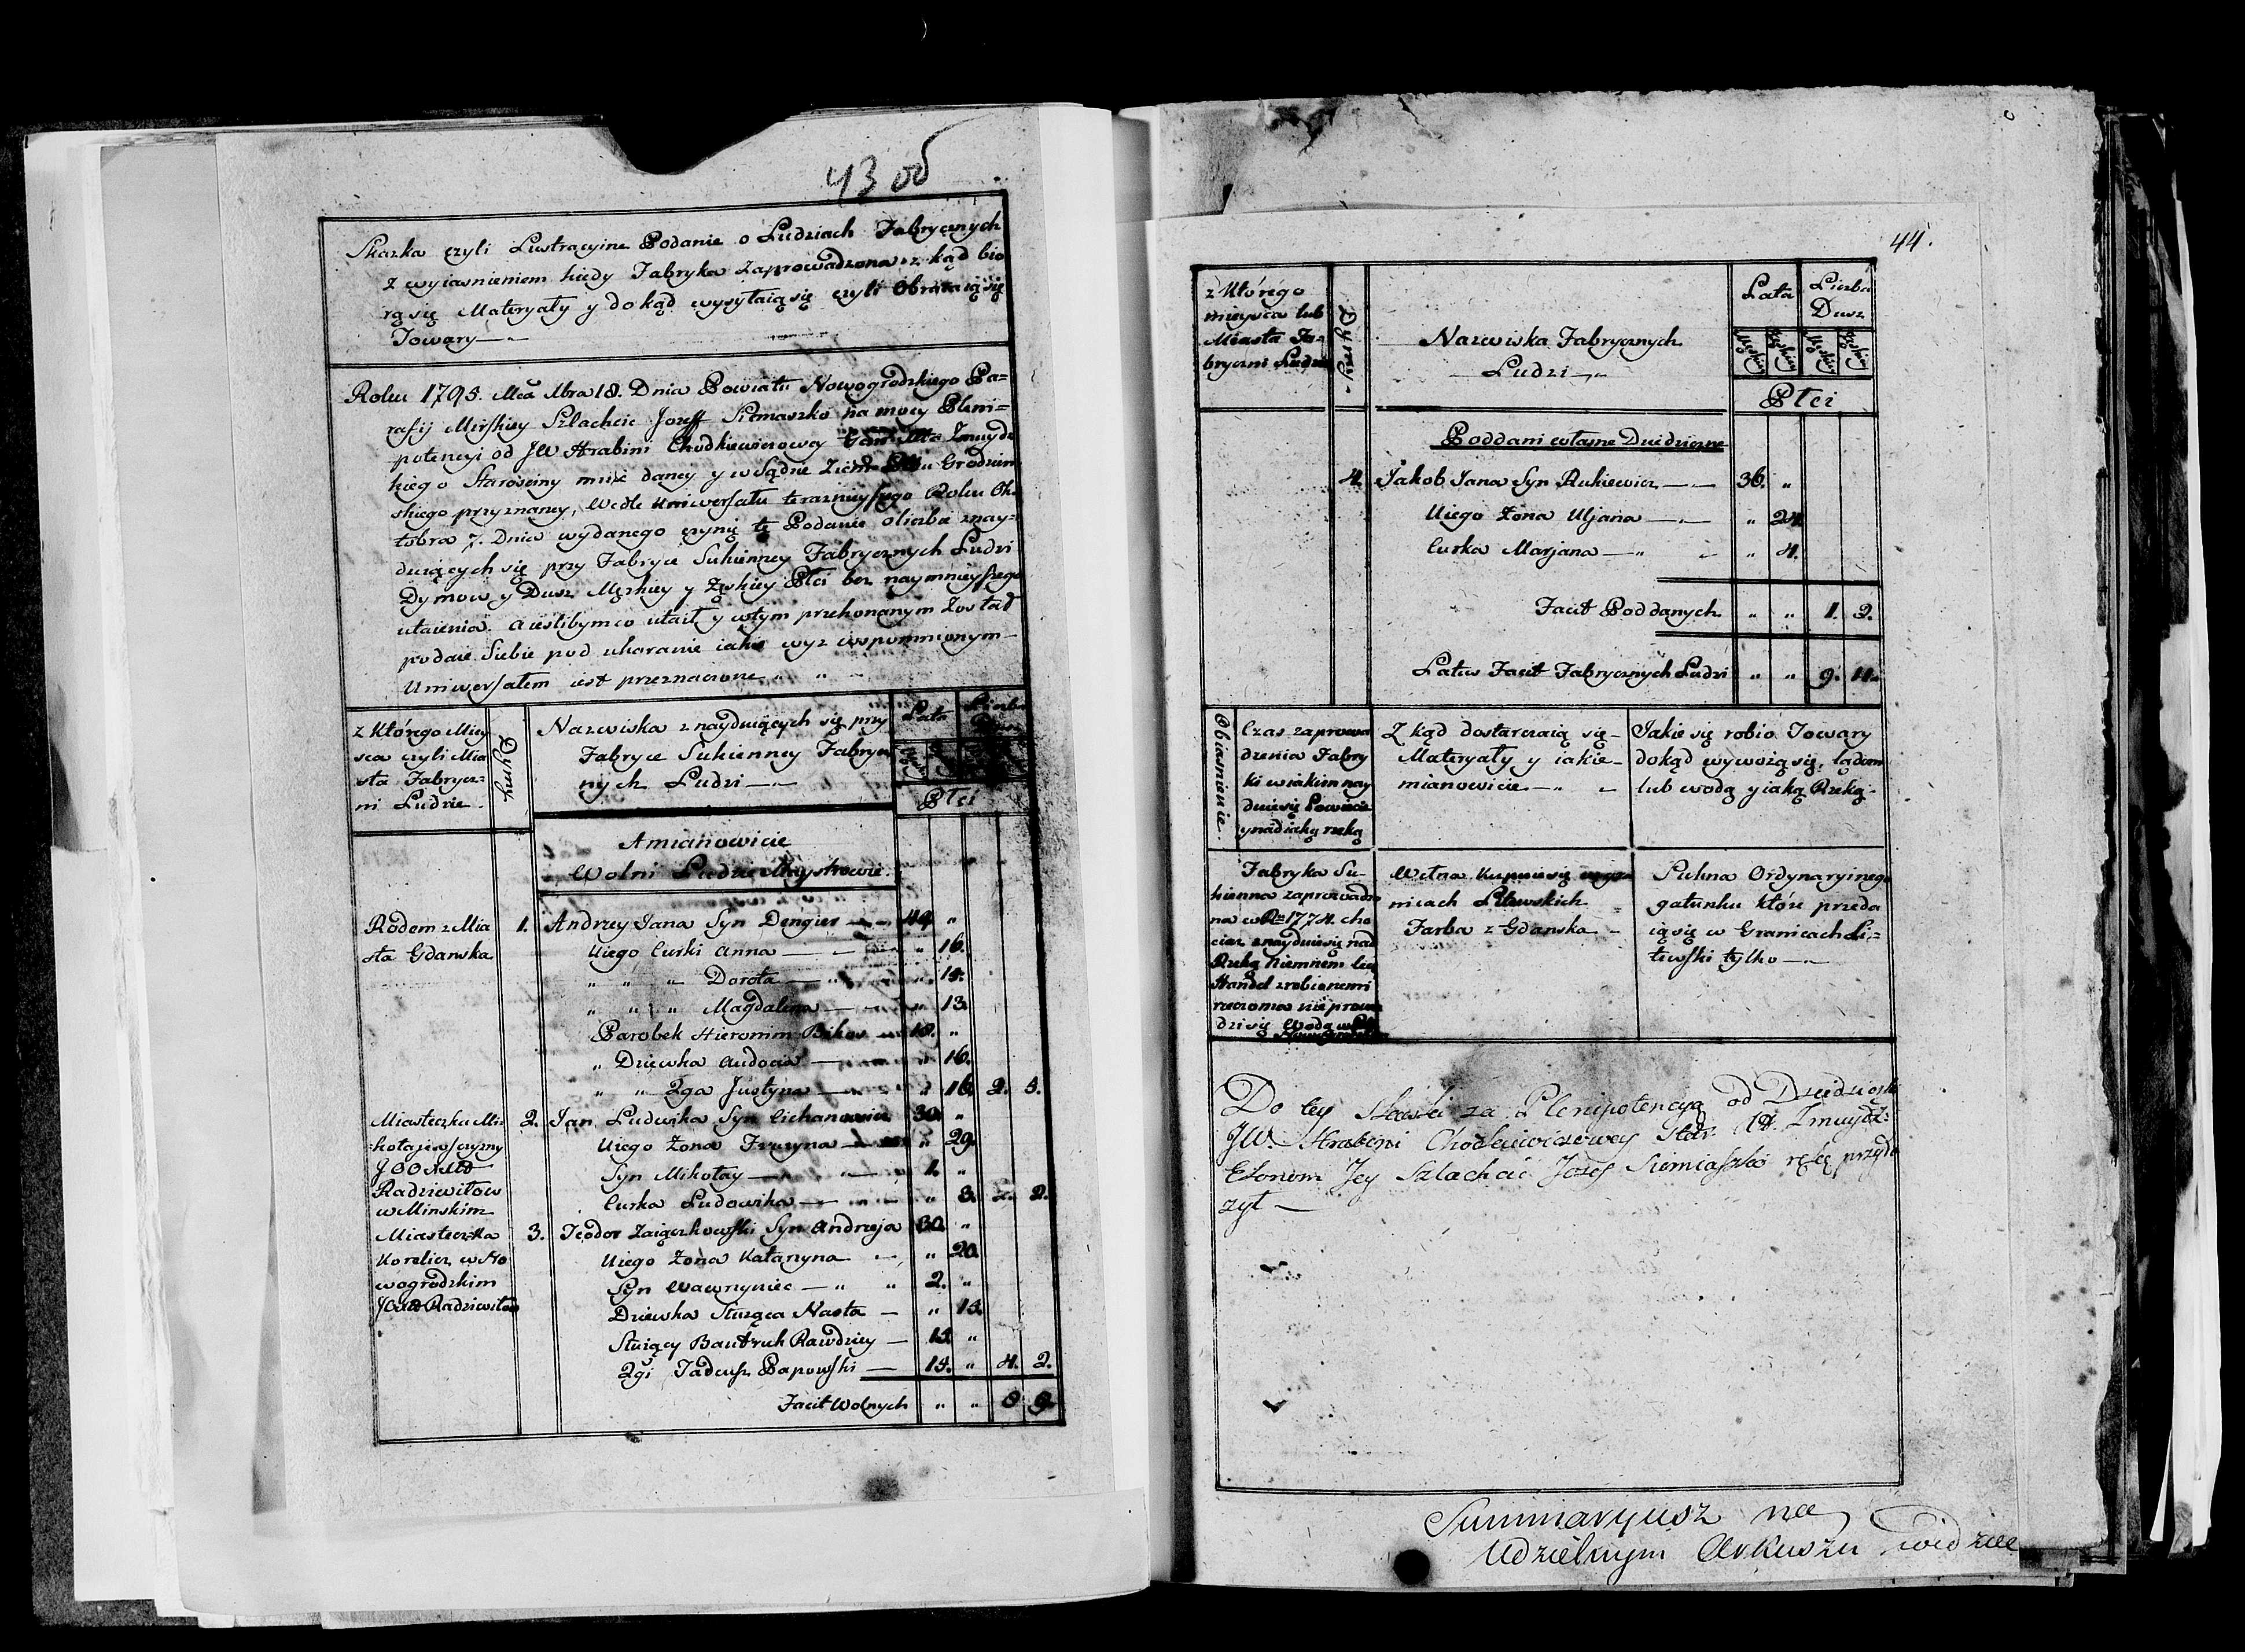 43 об
Skazka czyli Lustracyine Podanie o Ludziach Fabrycznych
z wyiasnieniem kiedy Fabryka Zaprowadzona z kąd bio
rą się Materyały y dokąd wysyłaią się czyli Obracaią się
Towary —
Roku 1795. Mca Xbra 18. Dnia Powiatu Nowogrodzkiego Pa=
rafij Mirskiey Szlachcic Jozeff Siemaszko na mocy Pleni=
potencyi od JW Hrabini Chodkiewiczowey Żmuydz
kiego Starosciny mnie daney y w Sądzie Ziem Grodzien
skiego przyznaney, Wedle Uniwersału teraznieyszego Roku Ok=
tobra 7. Dnia wydanego czynię tę Podanie o liczbie znay=
duiących się przy Fabryce Sukienney Fabrycznych Ludzi
Dymow y Dusz Męzkiey y Żęskiey Płci bez naymnieyszego
utaienia. a iesli bym co utaił y w tym przekonanym został
podaie Siebie pod ukaranie iakie wyz wspomnionym
Uniwersałem iest przeznaczone „ „
z Którego Miey
sca czyli Mia
sta Fabrycz=
ni Ludzie
Dymy
Nazwiska znayduiących się przy
Fabryce Sukienney Fabrycz
nych Ludzi —
Lata
Liczba
Płci
A mianowicie
Wolni Ludzie Maystrowie
Rodem z Mia 1. Andrzey Jana Syn Dengier 49 „
sta Gdanska Uiego Curki Anna — „ 16.
„ „ „ Dorota — „ 15.
„ „ „ Magdalena — „ 13.
Parobek Hieronim 18. „
„ Dziewka Audocia — „ 16.
„ „ 2ga Justyna — „ 16. 2. 5.
Miasteczku Mi 2. Jan Ludwika Syn Cichanowicz 30. „
kołajewszczyzny Uiego Żona Fruzyna — „ 29.
Syn Mikołay — 1. „
Radziwiłow Curka Ludowika — „ 3. 2. 2.
w Minskim
Miasteczka 3. Teodor Zaiączkowski Syn Andrzeja 30. „
Korelicz w No Uiego Żona Katarzyna „ 20.
wogrodzkim Syn Wawrzyniec — „ „ 2. „
Radziwiłow Dziewka Służąca Nasta — „ 15.
Służący Bautruk Rawdziey — 15. „
2gi Tadeusz Papowski — 15. „ 4. 2.
Facit Wolnych „ „ 8 9.
44.
z Którego
mieysca lub
Miasta Fa=
bryczni Ludzie
Dymy
Nazwiska Fabrycznych
Ludzi —
Lata
Liczba
Dusz
Płci
Poddani własne Dziedziczne
4. Jakob Jana Syn Rukiewicz — 36. „
Uiego Żona Uljana — „ 24.
Curka Marjana — „ „ 4.
Facit Poddanych „ „ 1. 2.
Latus Facit Fabrycznych Ludzi „ „ 9. 11.
Obiasnienie
Czas zaprowa
dzenia Fabry
ki w iakim nay
duie się Powiecie
y nad iaką rzeką
Z kąd dostarczaią się
Materyały y iakie
mianowicie —
Jakie się robio Towary
dokąd wywożą się, lądem
lub wodą y iaką Rzeką
Fabryka Su
kienna zaprowadzo
na w R= 1774. cho
ciaz znayduie się nad
Rzeką Niemnem lecz
Handel z robionemi
rzeczoma nie prowa
dzi się Wodą
Wełna kupuie się
nicach Litewskich
Farba z Gdanska —
Sukna Ordynaryinego
gatunku które przeda
ią się w Granicach Li=
tewski tylko —
Do tey Skaski za Plenipotencyą od Dziedziczki
JW. Hrabini Chodkiewiczowey Star. Żmuydz:
Ekonom Jey Szlachcic Jozef Siemiaszko rękę przyło
żył —
Summaryusz na
Udzielnym Arkuszu widzieć